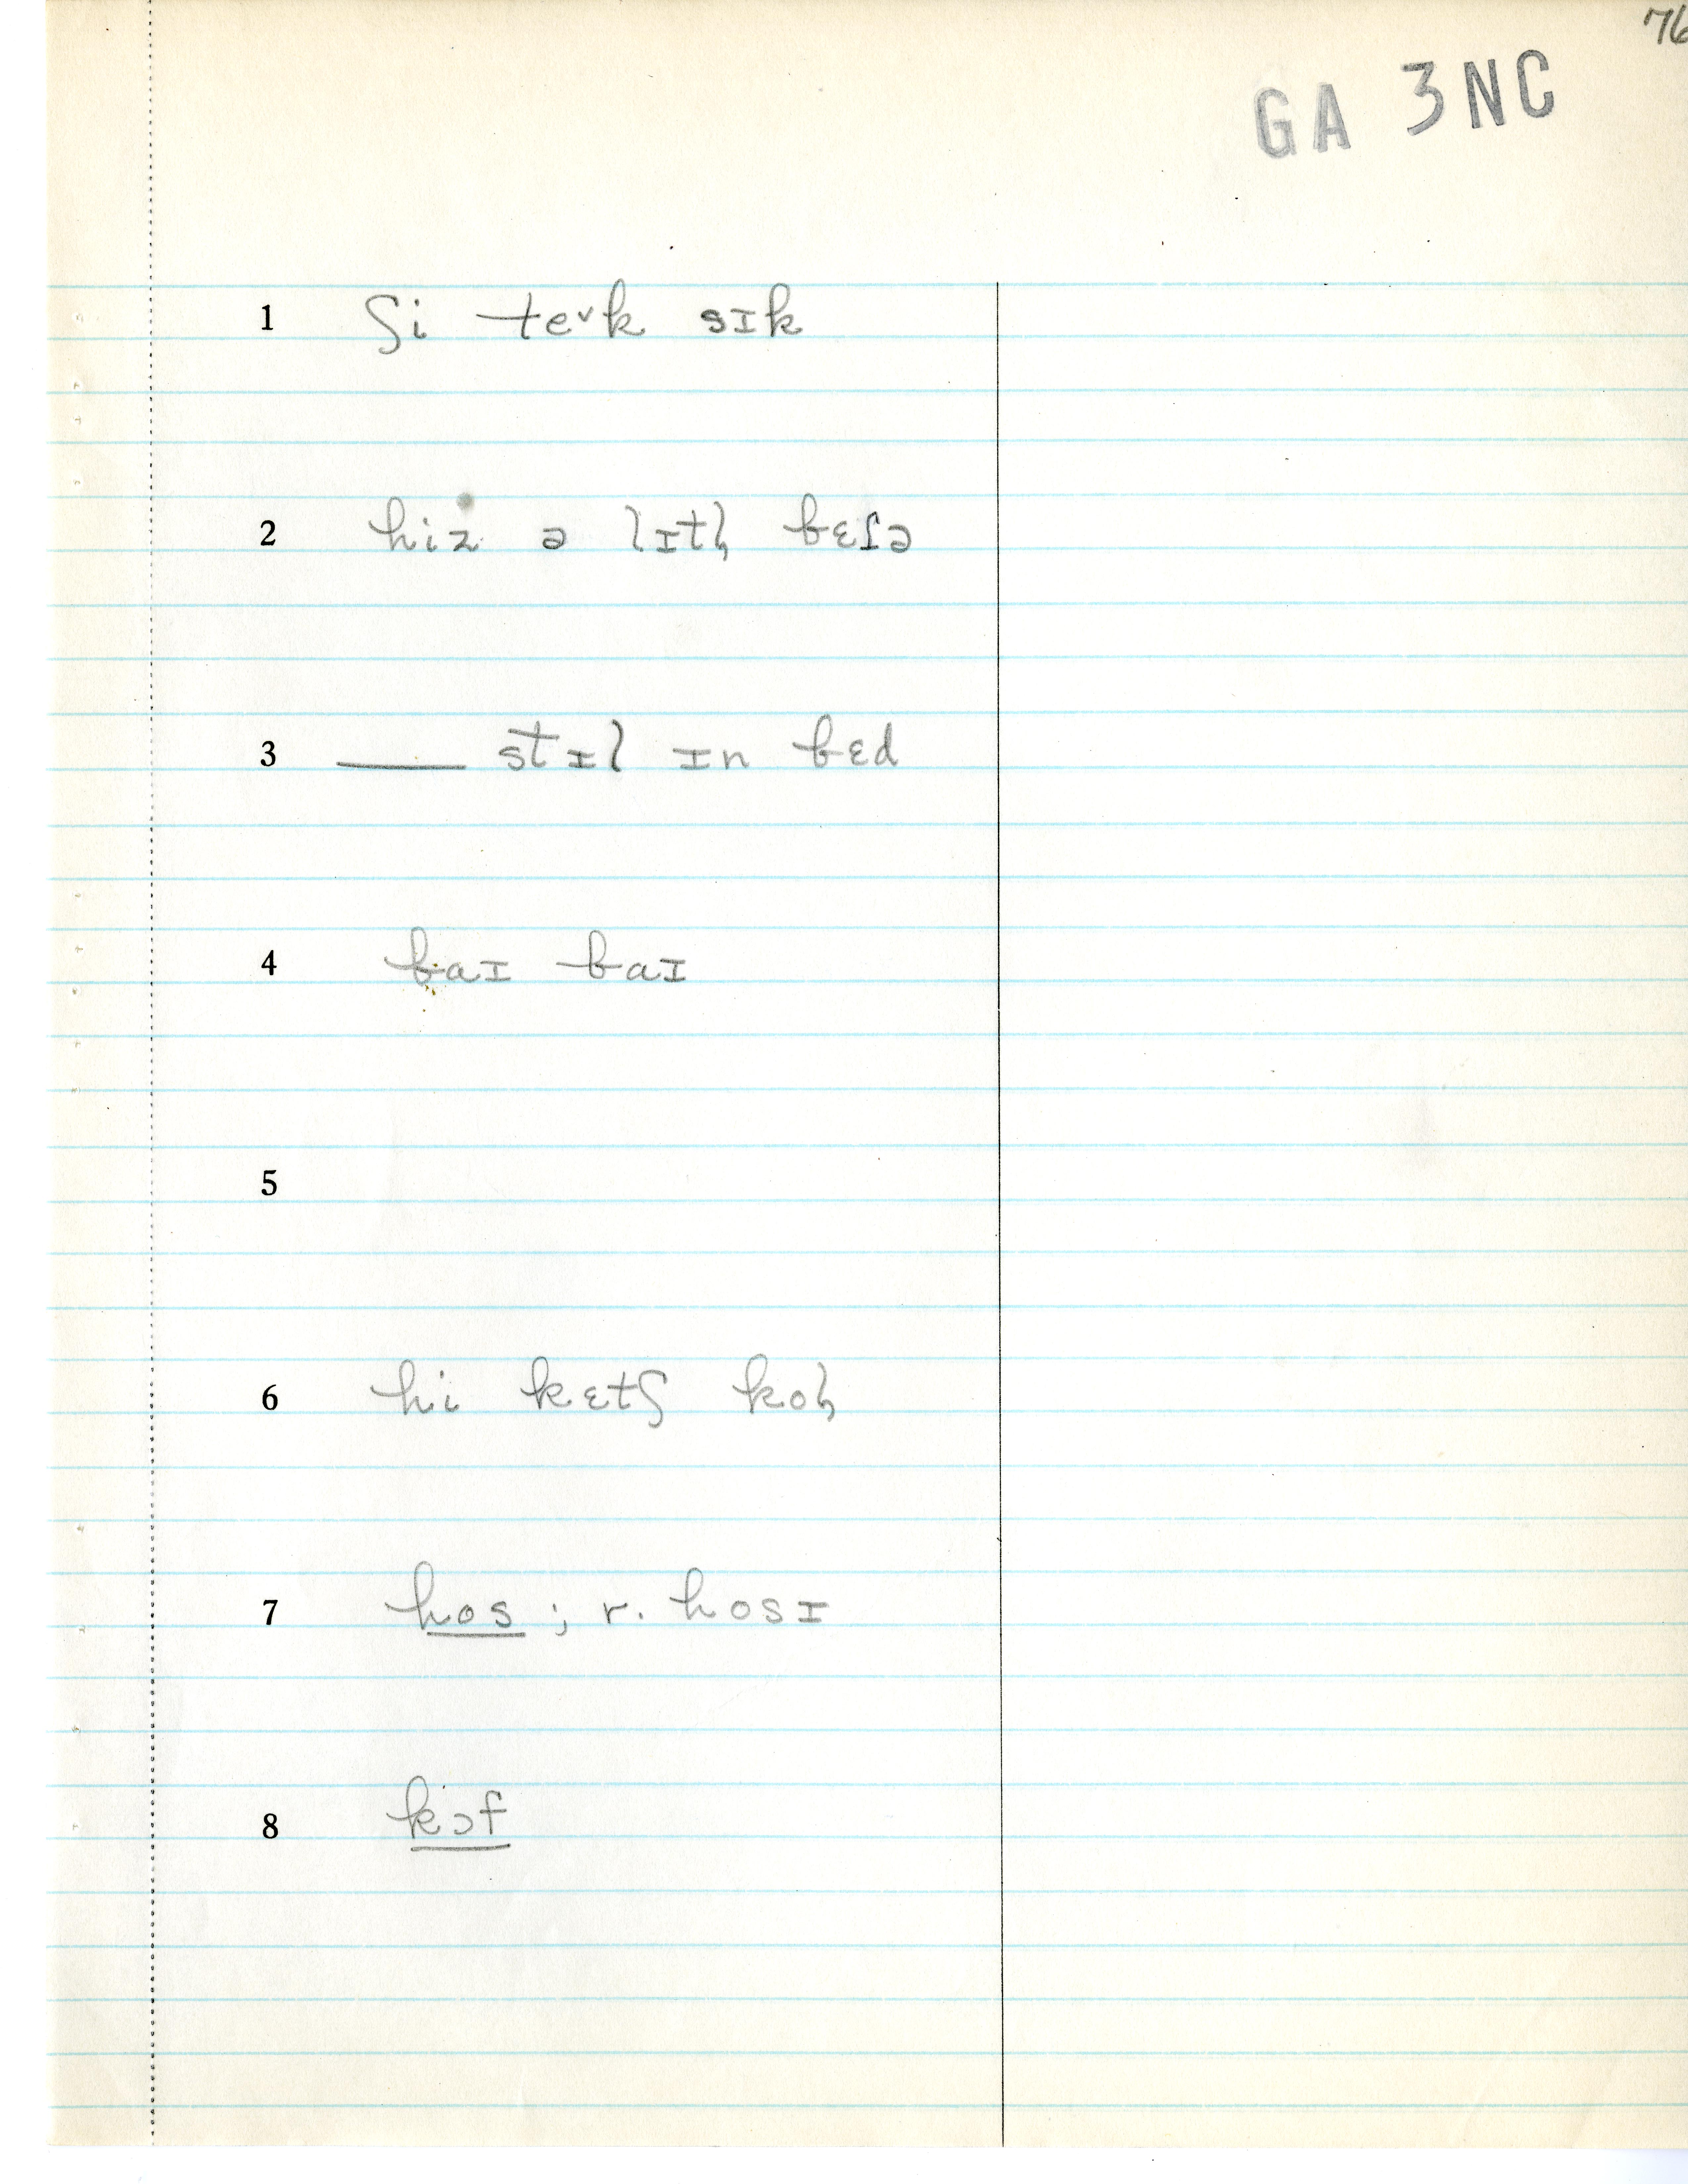 76
GA 3NC
1 ʃi teᵛk sɪk
2 hiz ə lɪtl̩ bɛʃə
3 ____ stɪl ɪn bɛd
4 baɪ baɪ
5
6 hi kɛtʃ kol̩
7 hos ; r. hosɪ
8 kɔf